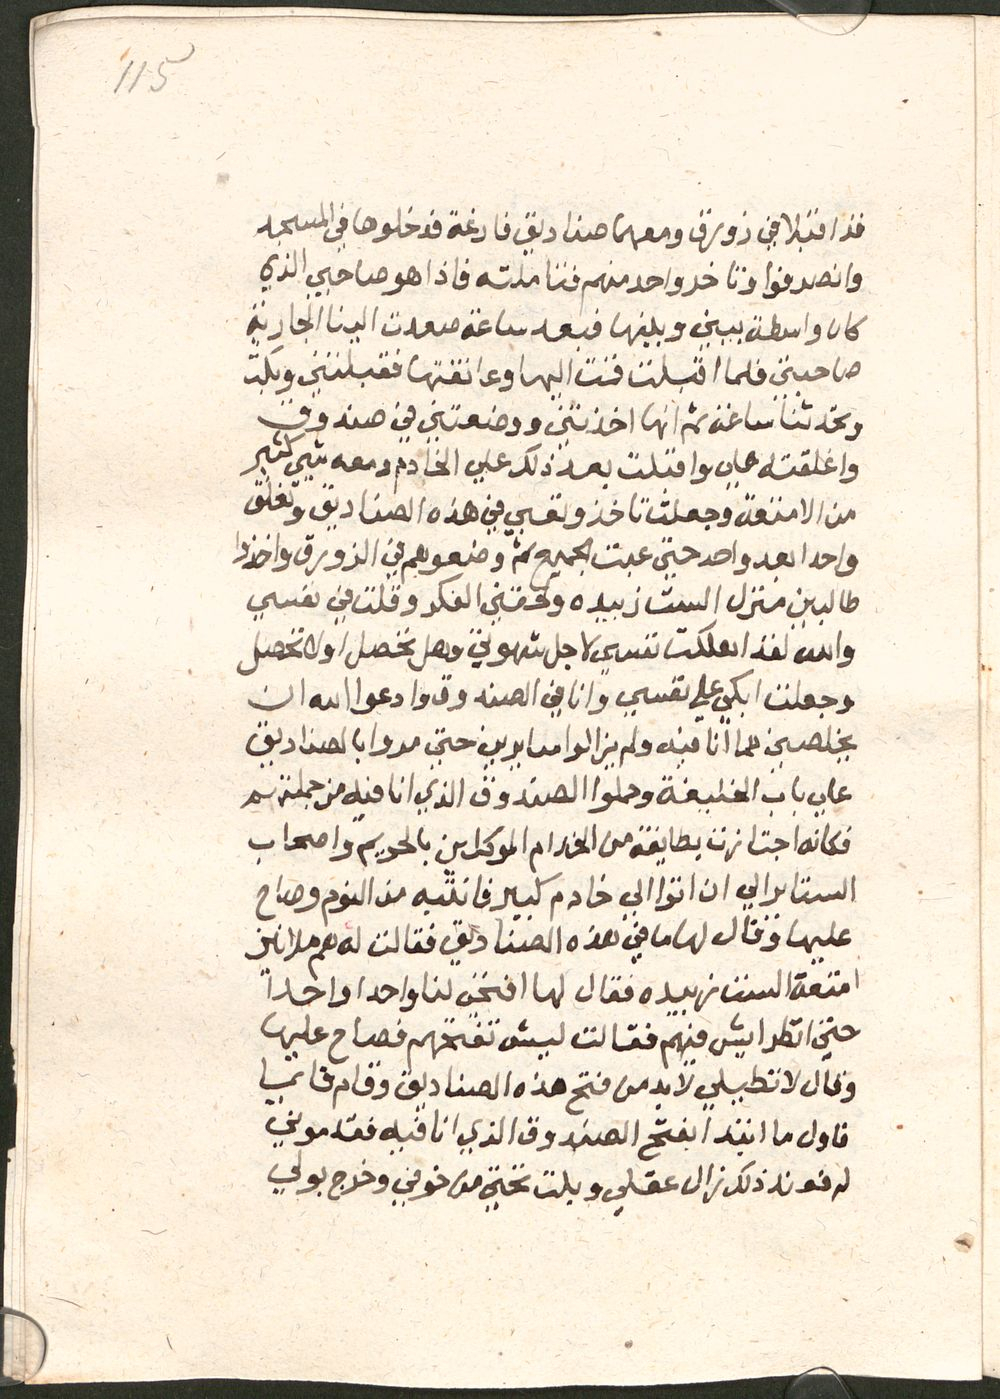 115
قد اقبلا في زورق ومعهما صناديق فارغة فدخلوها في المسجد
وانصرفوا وتاخر واحد منهم فتاملته فاذا هو صاحبي الذي
كان واسطة بيني وبينها فبعد ساعة صعدت الينا الجارية
صاحبتي فلما اقبلت قمت اليها وعانقتها فقبلتني وبكت
وتحدثنا ساعة ثم انها اخذتني ووضعتني في صندوق
واغلقته علي واقبلت بعد ذلك علي الخادم ومعه شي كثير
من الامتعة وجعلت تاخذ وتعبي في هذه الصناديق وتغلق
واحدا بعد واحد حتي عبت الجميع ثم وضعوهم في الزورق واخذوا
طالبين منزل الست زبيده ولحقني الفكر وقلت في نفسي
والله لقد اهلكت نفسي لاجل شهوتي وهل تحصل اولا تحصل
وجعلت ابكي علي نفسي وانا في الصندوق وادعوا الله ان
يخلصني مما انا فيه ولم يزالوا سايرين حتي مروا بالصناديق
علي باب الخليفة وحملوا الصندوق الذي انا فيه من جملتهم
فكانه اجتازت بطايفة من الخدام الموكلين بالحريم واصحاب
الستاير الي ان اتوا الي خادم كبير فانتبه من النوم وصاح
عليها وقال لها ما في هذه الصناديق فقالت له هم ملانين
امتعة الست زبيده فقال لها افتحي لنا واحدا واحدا
حتي انظر ايش فيهم فقالت ليش تفتحهم فصاح عليها
وقال لا تطيلي لا بد من فتح هذه الصناديق وقام قايما
فاول ما ابتدا بفتح الصندوق الذي انا فيه فقدموني
له فعند ذلك زال عقلي وبلت تحتي من خوفي وخرج بولي